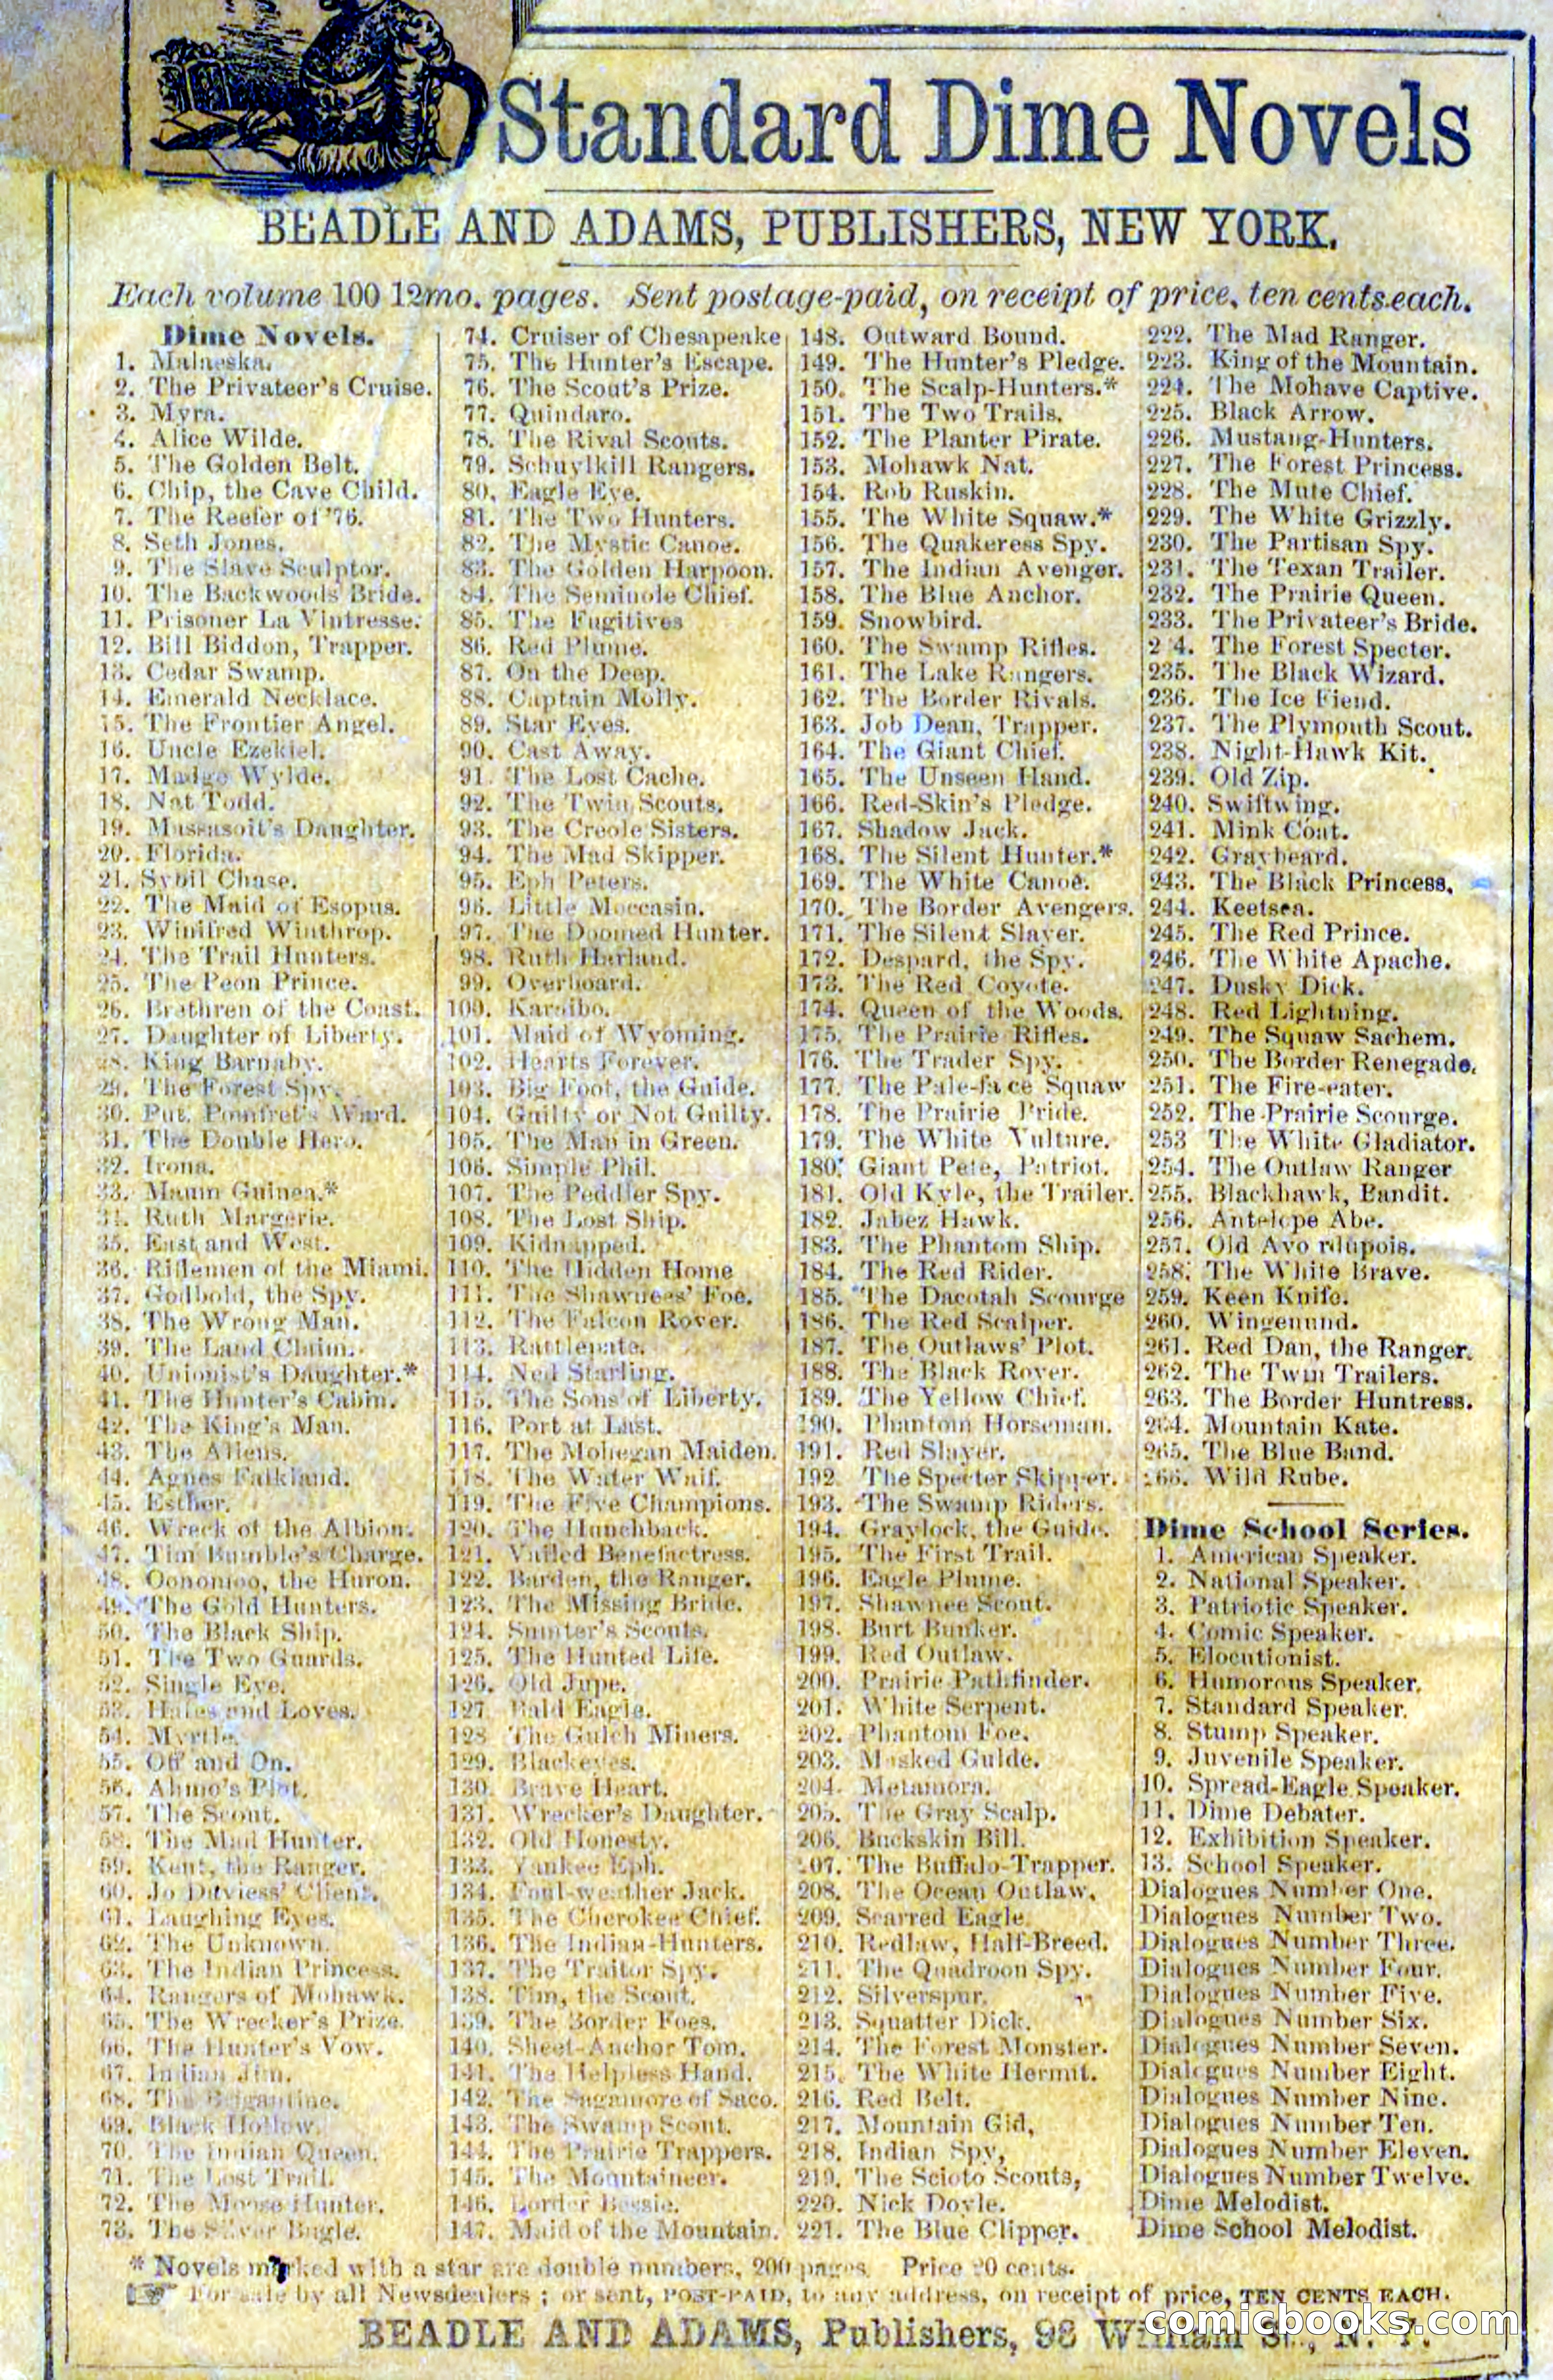 Standard Dime Novels
BEADLE AND ADAMS, PUBLISHERS, NEW YORK.
Each volume 100 12mo. pages. Sent postage-paid, on receipt of price, ten cents each.
Dime Novels.
1. Malaeska.
2. The Privateer's Cruise.
3. Myra.
4. Alice Wilde.
5. The Golden Belt.
6. Chip, the Cave Child.
7. The Reefer of '76.
8. Seth Jones.
9. The Slave Sculptor.
10. The Backwoods Bride.
11. Prisoner La Vintresse.
12. Bill Biddon, Trapper.
13. Cedar Swamp.
14. Emerald Necklace.
15. The Frontier Angel.
16. Uncle Ezekiel.
17. Madge Wylde.
18. Nat Todd.
19. Massasoit's Daughter.
20. Florida.
21. Sybil Chase.
22. The Maid of Esopus.
23. Winifred Winthrop.
24. The Trail Hunters.
25. The Peon Prince.
26. Brethren of the Coast.
27. Daughter of Liberty.
28. King Barnaby.
29. The Forest Spy.
30. Put. Pomfret's Ward.
31. The Double Hero.
32. Irona.
33. Maum Guinea.*
34. Ruth Margerie.
35. East and West.
36. Riflemen of the Miami.
37. Godbold, the Spy.
38. The Wrong Man.
39. The Land Claim.
40. Unionist's Daughter.*
41. The Hunter's Cabin.
42. The King's Man.
43. The Aliens.
44. Agnes Falkland.
45. Esther.
46. Wreck of the Albion.
47. Tim Bumble's Charge.
48. Oonomoo, the Huron.
49. The Gold Hunters.
50. The Black Ship.
51. The Two Guards.
52. Single Eye.
53. Hates and Loves.
54. Myrtle.
55. Off and On.
56. Ahmo's Plot.
57. The Scout.
58. The Mad Hunter.
59. Kent, the Ranger.
60. Jo Daviess' Client.
61. Laughing Eyes.
62. The Unknown.
63. The Indian Princess.
64. Rangers of Mohawk.
65. The Wrecker's Prize.
66. The Hunter's Vow.
67. Indian Jim.
68. The Brigantine.
69. Black Hollow.
70. The Indian Queen.
71. The Lost Trail.
72. The Moose Hunter.
73. The Silver Bugle.
74. Cruiser of Chesapeake
75. The Hunter's Escape.
76. The Scout's Prize.
77. Quindaro.
78. The Rival Scouts.
79. Schuylkill Rangers.
80. Eagle Eye.
81. The Two Hunters.
82. The Mystic Canoe.
83. The Golden Harpoon.
84. The Seminole Chief.
85. The Fugitives
86. Red Plume.
87. On the Deep.
88. Captain Molly.
89. Star Eyes.
90. Cast Away.
91. The Lost Cache.
92. The Twin Scouts.
93. The Creole Sisters.
94. The Mad Skipper.
95. Eph Peters.
96. Little Moccasin.
97. The Doomed Hunter.
98. Ruth Harland.
99. Overboard.
100. Karaibo.
101. Maid of Wyoming.
102. Hearts Forever.
103. Big Foot, the Guide.
104. Guilty or Not Guilty.
105. The Man in Green.
106. Simple Phil.
107. The Peddler Spy.
108. The Lost Ship.
109. Kidnapped.
110. The Hidden Home
111. The Shawnees' Foe.
112. The Falcon Rover.
113. Rattlepate.
114. Ned Starling.
115. The Sons of Liberty.
116. Port at Last.
117. The Mohegan Maiden.
118. The Water Waif.
119. The Five Champions.
120. The Hunchback.
121. Vailed Benefactress.
122. Barden, the Ranger.
123. The Missing Bride.
124. Sumter's Scouts.
125. The Hunted Life.
126. Old Jupe.
127. Bald Eagle.
128 The Gulch Miners.
129. Blackeyes.
130. Brave Heart.
131. Wrecker's Daughter.
132. Old Honesty.
133. Yankee Eph.
134. Foul-weather Jack.
135. The Cherokee Chief.
136. The Indian-Hunters.
137. The Traitor Spy.
138. Tim, the Scout.
139. The Border Foes.
140. Sheet-Anchor Tom.
141. The Helpless Hand.
142. The Sagamore of Saco.
143. The Swamp Scout.
144. The Prairie Trappers.
145. The Mountaineer.
146. Border Bessie.
147. Maid of the Mountain.
148. Outward Bound.
149. The Hunter's Pledge.
150. The Scalp-Hunters.*
151. The Two Trails.
152. The Planter Pirate.
153. Mohawk Nat.
154. Rob Ruskin.
155. The White Squaw.*
156. The Quakeress Spy.
157. The Indian Avenger.
158. The Blue Anchor.
159. Snowbird.
160. The Swamp Rifles.
161. The Lake Rangers.
162. The Border Rivals.
163. Job Dean, Trapper.
164. The Giant Chief.
165. The Unseen Hand.
166. Red-Skin's Pledge.
167. Shadow Jack.
168. The Silent Hunter.*
169. The White Canoe.
170. The Border Avengers.
171. The Silent Slayer.
172. Despard, the Spy.
173. The Red Coyote.
174. Queen of the Woods.
175. The Prairie Rifles.
176. The Trader Spy.
177. The Pale-face Squaw
178. The Prairie Pride.
179. The White Vulture.
180. Giant Pete, Patriot.
181. Old Kyle, the Trailer.
182. Jabez Hawk.
183. The Phantom Ship.
184. The Red Rider.
185. The Dacotah Scourge
186. The Red Scalper.
187. The Outlaws' Plot.
188. The Black Rover.
189. The Yellow Chief.
190. Phantom Horseman.
191. Red Slayer.
192. The Specter Skipper.
193. The Swamp Riders.
194. Graylock, the Guide.
195. The First Trail.
196. Eagle Plume.
197. Shawnee Scout.
198. Burt Bunker.
199. Red Outlaw.
200. Prairie Pathfinder.
201. White Serpent.
202. Phantom Foe.
203. Masked Guide.
204. Metamora.
205. The Gray Scalp.
206. Buckskin Bill.
207. The Buffalo-Trapper.
208. The Ocean Outlaw.
209. Scarred Eagle
210. Redlaw, Half-Breed.
211. The Quadroon Spy.
212. Silverspur.
213. Squatter Dick.
214. The Forest Monster.
215. The White Hermit.
216. Red Belt.
217. Mountain Gid,
218. Indian Spy,
219. The Scioto Scouts,
220. Nick Doyle.
221. The Blue Clipper.
222. The Mad Ranger.
223. King of the Mountain.
224. The Mohave Captive.
225. Black Arrow.
226. Mustang-Hunters.
227. The Forest Princess.
228. The Mute Chief.
229. The White Grizzly.
230. The Partisan Spy.
231. The Texan Trailer.
232. The Prairie Queen.
233. The Privateer's Bride.
2 4. The Forest Specter.
235. The Black Wizard.
236. The Ice Fiend.
237. The Plymouth Scout.
238. Night-Hawk Kit.
239. Old Zip.
240. Swiftwing.
241. Mink Coat.
242. Graybeard.
243. The Black Princess.
244. Keetsea.
245. The Red Prince.
246. The White Apache.
247. Dusky Dick.
248. Red Lightning.
249. The Squaw Sachem.
250. The Border Renegade.
251. The Fire-eater.
252. The Prairie Scourge.
253 The White Gladiator.
254. The Outlaw Ranger
255. Blackhawk, Bandit.
256. Antelope Abe.
257. Old Avo rdupois.
258. The White Brave.
259. Keen Knife.
260. Wingenund.
261. Red Dan, the Ranger.
262. The Twin Trailers.
263. The Border Huntress.
264. Mountain Kate.
265. The Blue Band.
266. Wild Rube.
Dime School Series.
1. American Speaker.
2. National Speaker.
3. Patriotic Speaker.
4. Comic Speaker.
5. Elocutionist.
6. Humorous Speaker.
7. Standard Speaker.
8. Stump Speaker.
9. Juvenile Speaker.
10. Spread-Eagle Speaker.
11. Dime Debater.
12. Exhibition Speaker.
13. School Speaker.
Dialogues Number One.
Dialogues Number Two.
Dialogues Number Three.
Dialogues Number Four.
Dialogues Number Five.
Dialogues Number Six.
Dialogues Number Seven.
Dialogues Number Eight.
Dialogues Number Nine.
Dialogues Number Ten.
Dialogues Number Eleven.
Dialogues Number Twelve.
Dime Melodist.
Dime School Melodist.
* Novels marked with a star are double numbers, 200 pages. Price 20 cents.
For sale by all Newsdealers; or sent, POST-PAID, to any address, on receipt of price, TEN CENTS EACH.
BEADLE AND ADAMS, Publishers, 98 William St., N. Y.
comicbooks.com